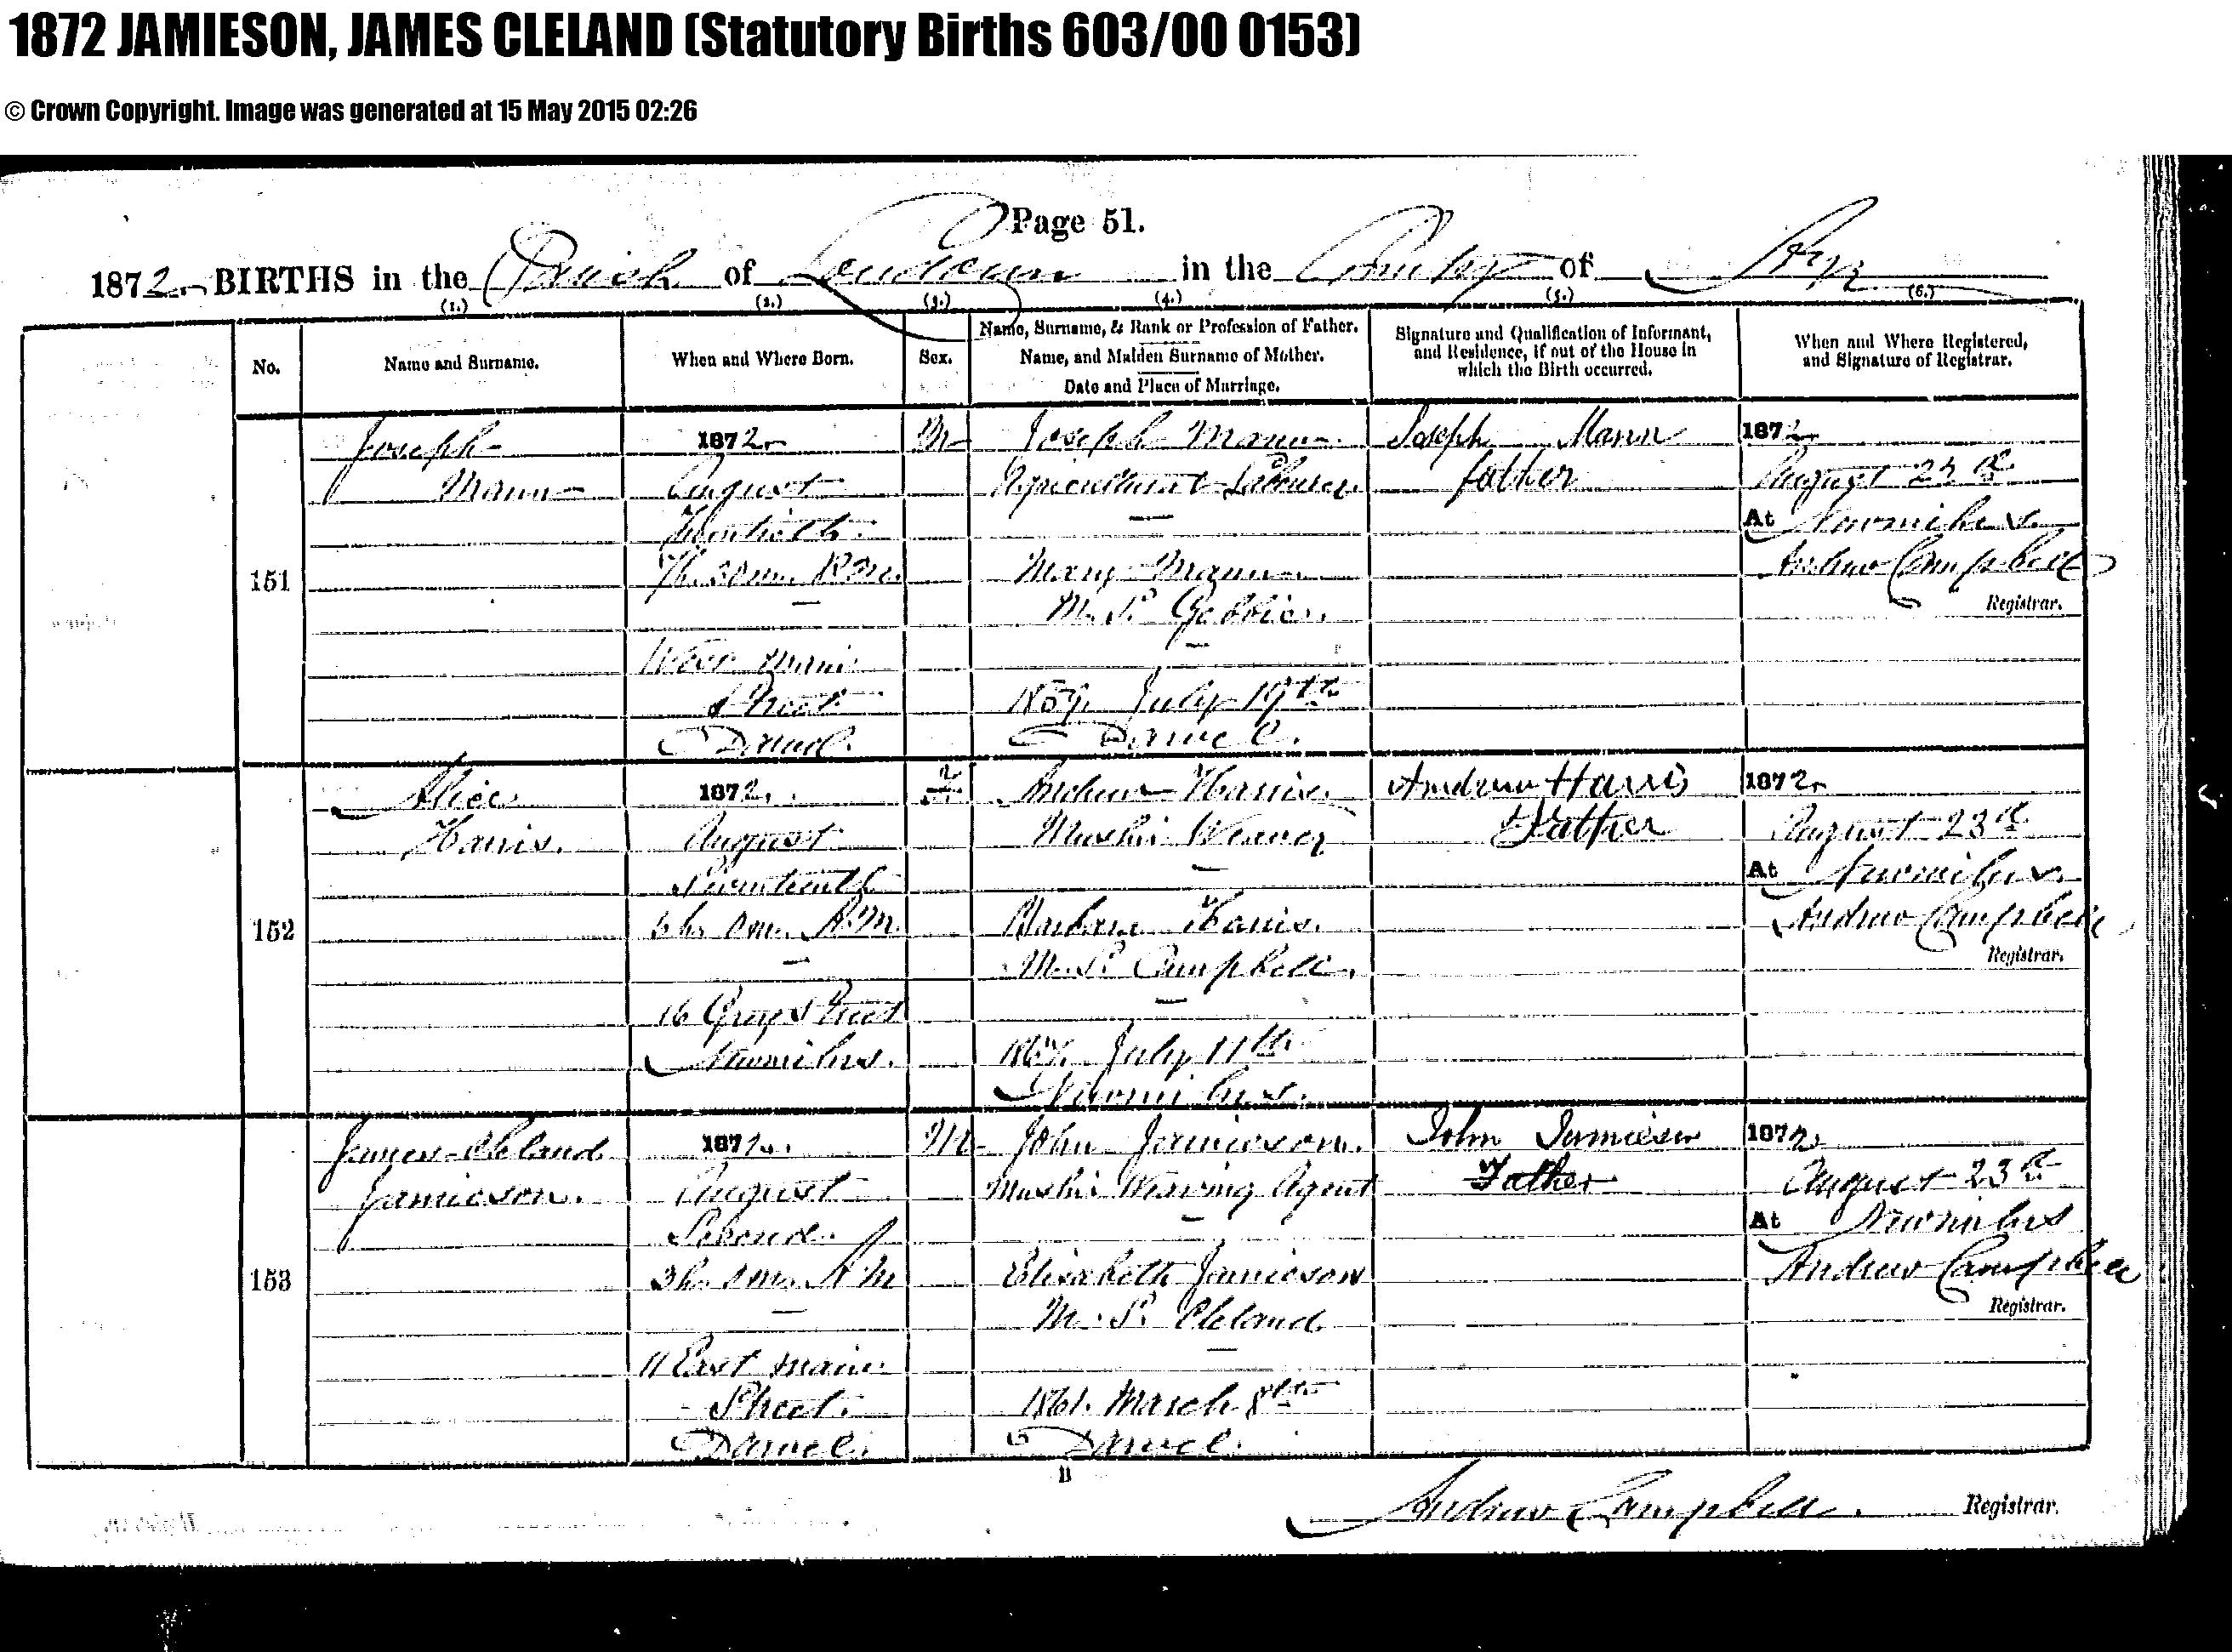 1872 JAMIESON, JAMES CLELAND (Statutory Births 603/00 0153)
© Crown Copyright. Image was generated at 15 May 2015 02:26
Page 51.
1872. BIRTHS in the Parish of Loudoun in the County of Ayr
(1.) (2.) (3.) (4.) (5.) (6.)
No.
Name and Surname.
When and Where Born.
Sex.
Name, Surname, & Rank or Profession of Father.
Name, and Maiden Surname of Mother.
Date and Place of Marriage.
Signature and Qualification of Informant,
and Residence, if out of the House in
which the Birth occurred.
When and Where Registered,
and Signature of Registrar.
151
Joseph
Mann
1872
August
Twentieth
0m. P.M.
West Main
Street
Darvel.
M
Joseph Mann
Agricultural Labourer
Mary Mann
M.S. Gebbie.
1859. July 19th
Darvel.
Joseph Mann
father
1872
August 23rd
At Newmilns.
Andrew Campbell
Registrar.
152
Alice
Harris.
1872.
August
Seventeenth
6h. 0m. A.M.
16 Gray Street
Newmilns.
F
Andrew Harris.
Muslin Weaver
Barbara Harris.
M.S. Campbell.
July 11th
Newmilns.
Andrew Harris
Father
1872
August 23rd
At Newmilns.
Andrew Campbell
Registrar.
153
James Cleland
Jamieson.
1872.
August
Second.
3h. 0m. A M
11 East Main
Street.
Darvel.
M
John Jamieson.
Muslin Weaving Agent
Elizabeth Jamieson
M.S. Cleland
1861. March 8th
Darvel.
John Jamieson
Father
1872
August 23rd
At Newmilns
Andrew Campbell
Registrar.
B
Andrew Campbell. Registrar.